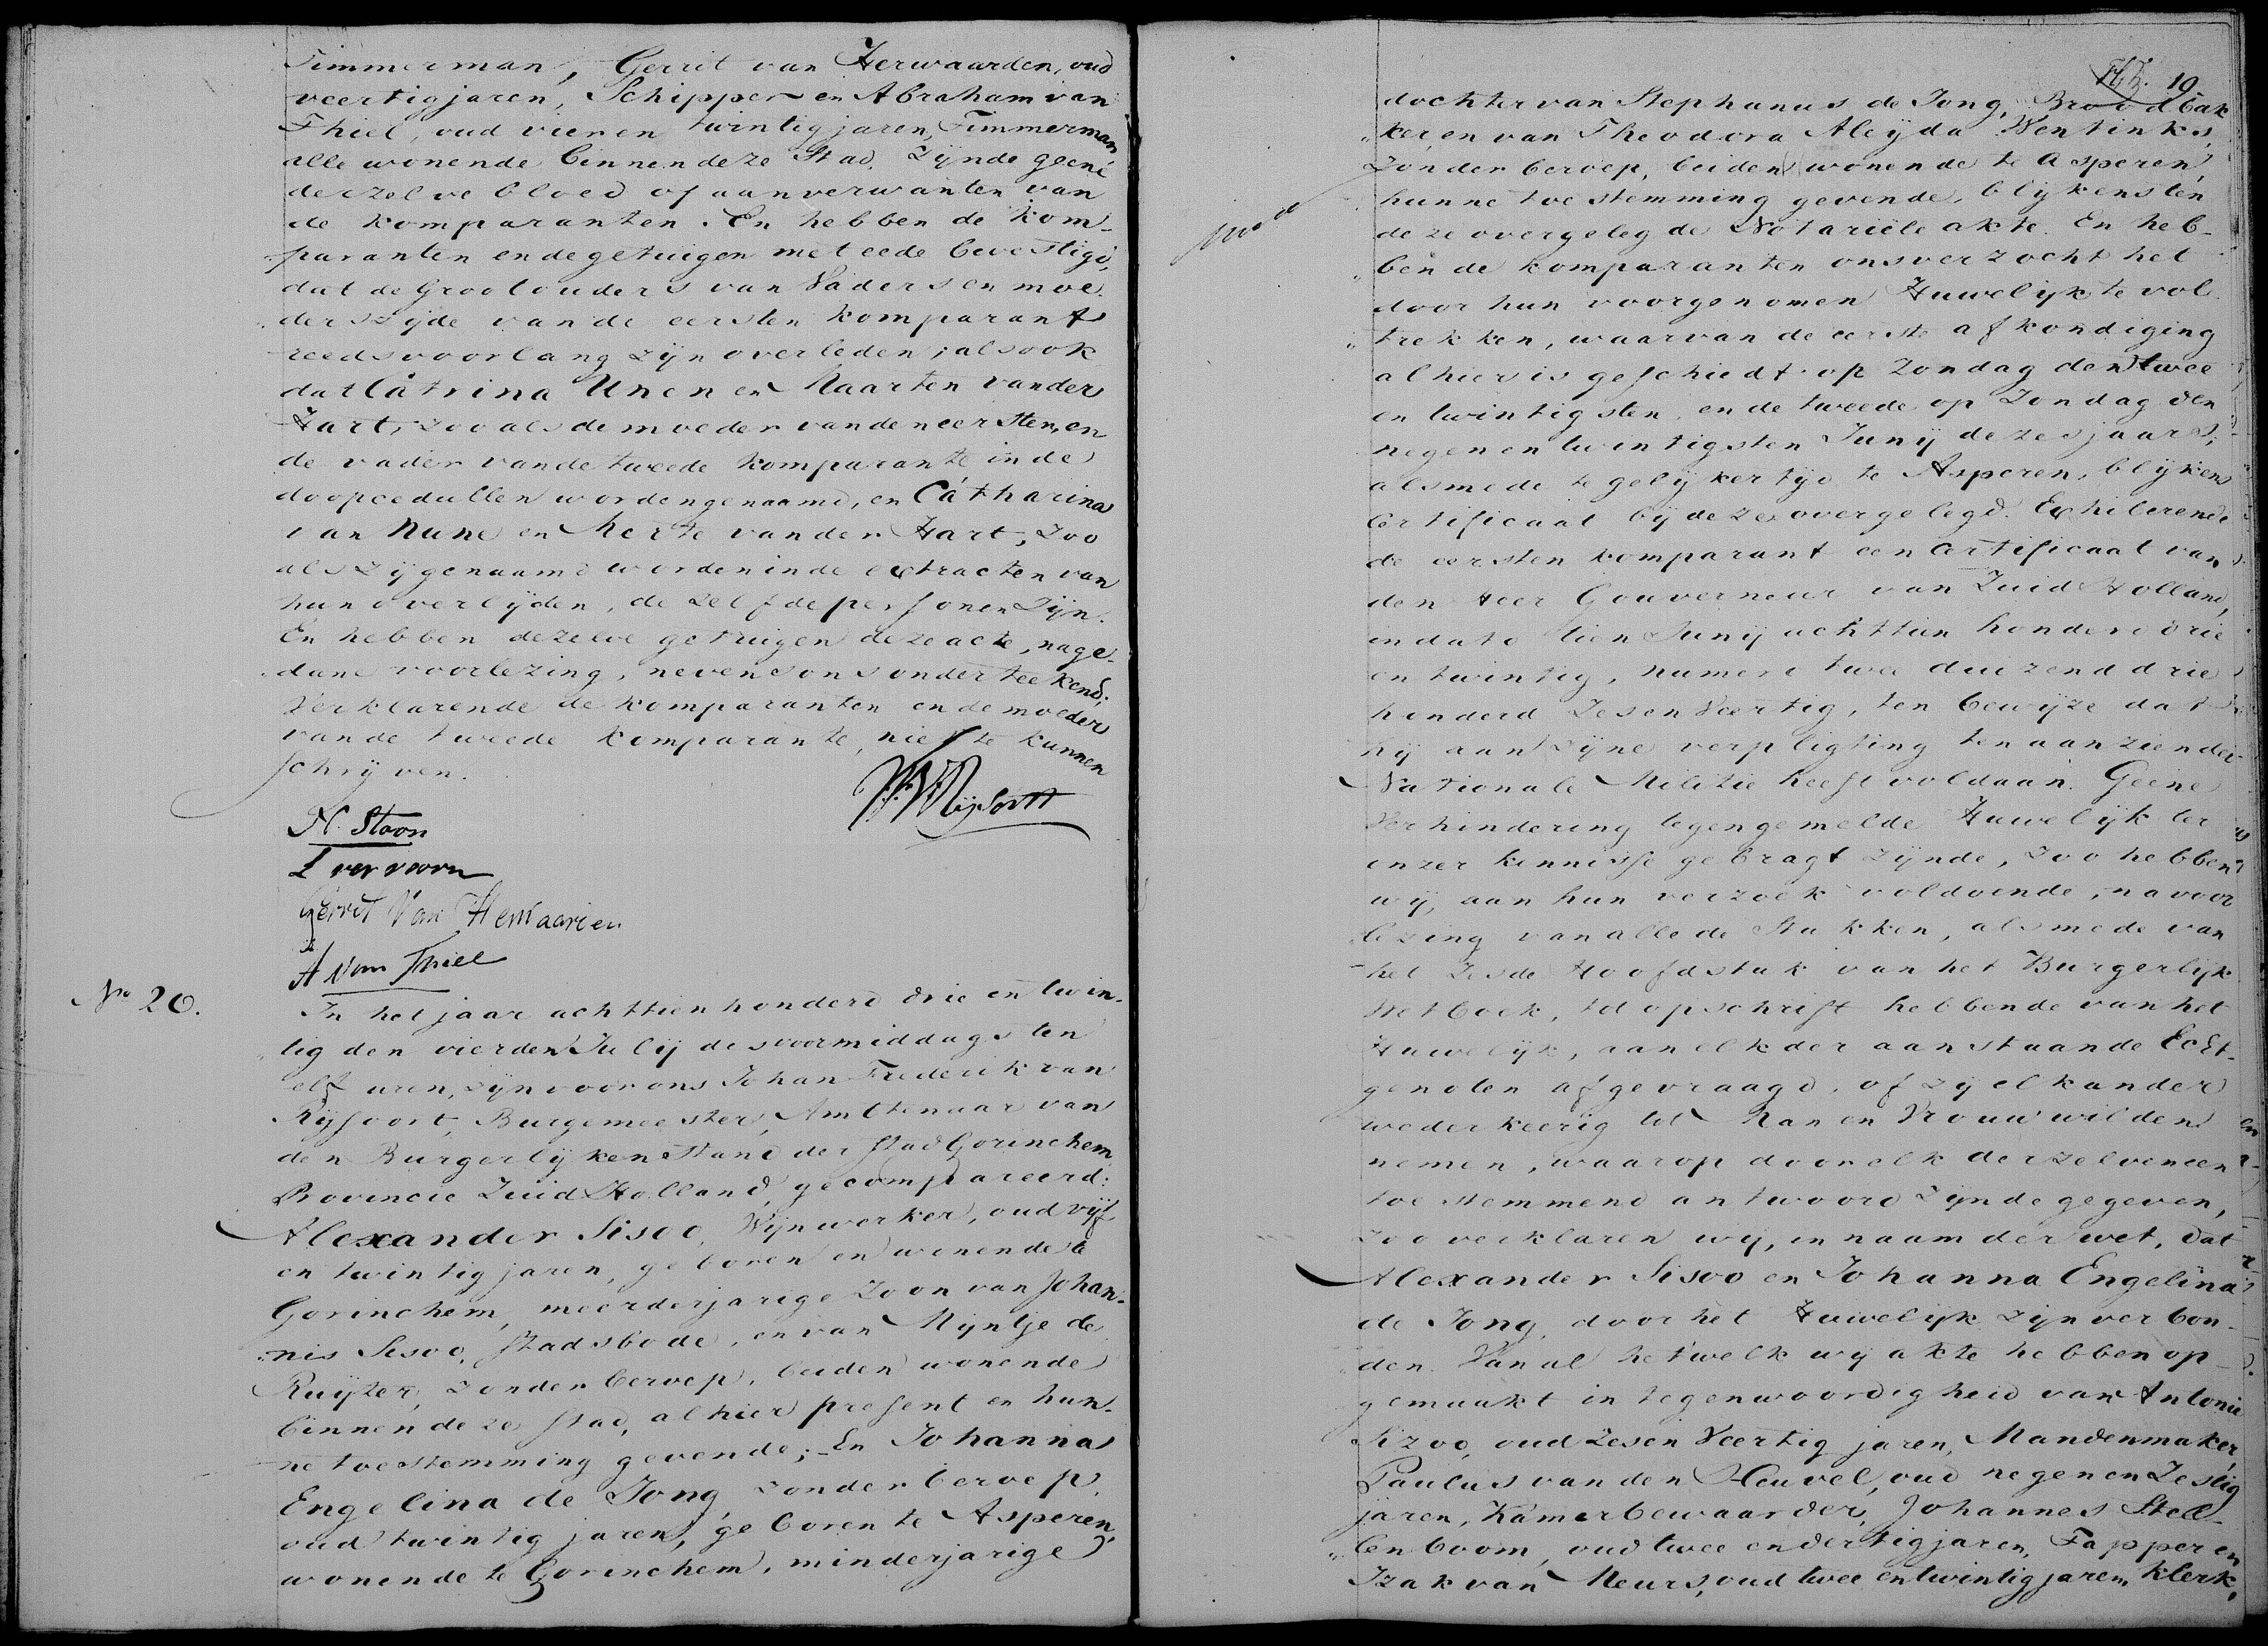 Timmerman, Gerrit van Herwaarden, oud
veertig jaren, Schipper en Abraham van
Thiel, oud vier en twintig jaren, Timmerman
alle wonende binnen deze Stad, zijnde geene
derzelve bloed of aanverwanten van
de komparanten. En hebben de kom-
paranten en de getuigen met eede bevestigd,
dat de Grootouders van Vaders en moe-
derszijde van de eersten komparant
reeds voorlang zijn overleden; alsook
dat Catrina Unen en Maarten vander
Hart, zoo als de moeder van den eersten, en
de vader van de tweede komparante in de
doopcedullen worden genaamd, en Catharina
van Nune en Merte van der Hart, zoo
als zij genaamd worden in de extracten van
hun overlijden, de zelfde personen zijn.
En hebben dezelve getuigen deze acte, nage-
dane voorlezing, nevens ons onderteekend;
Verklarende de komparanten en de moeder
van de tweede komparante, niet te kunnen
schrijven.
N. Stoon
L vervoorn
Gerrit Van Herwaarden
A van Thiel
No 20.
In het jaar achttien honderd drie en twin-
tig den vierden Julij des voormiddags ten
elf uren, zijn voor ons Johan Frederik van
Rijsoort, Burgemeester, Ambtenaar van
den Burgerlijken Stand der Stad Gorinchem
Provincie Zuid Holland, gecompareerd:
Alexander Sisoo, Wijnwerker, oud vijf
en twintig jaren, geboren en wonende te
Gorinchem, meerderjarige zoon van Johan-
nis Sisoo, Stadsbode, en van Mijntje de
Ruijter, zonder beroep, beiden wonende
binnen deze Stad, alhier present en hun-
ne toestemming gevende; En Johanna
Engelina de Jong, zonder beroep,
oud twintig jaren, geboren te Asperen,
wonende te Gorinchem, minderjarige
19
dochter van Stephanus de Jong, Broodbak
ker, en van Theodora Aleijda Wentinks,
zonder beroep, beiden wonende te Asperen,
hunne toestemming gevende, blijkens ten
deze overgelegde Notariële akte. En heb-
ben de komparanten ons verzocht het
door hun voorgenomen Huwelijk te vol
trekken, waarvan de eerste afkondiging
alhier is geschiedt op Zondag den twee
en twintigsten, en de tweede op Zondag den
negenentwintigsten Junij dezes jaars,
alsmede te gelijkertijd te Asperen, blijkens
Certificaat bij deze overgelegd. Exhiberende
de eersten komparant een certificaat van
den Heer Gouverneur van Zuid Holland,
in dato tien Junij achttien honderd drie
en twintig, numero twee duizend drie
honderd Zes en Veertig, ten bewijze dat
hij aan zijne verpligting ten aanzien der
Nationale Militie heeft voldaan. Geene
Verhindering tegen gemelde Huwelijk ter
onzer kennisse gebragt zijnde, zoo hebben
wij, aan hun verzoek voldoende, na voor
lezing van alle de Stukken, alsmede van
het zesde Hoofdstuk van het Burgerlijk
Wetboek, tot opschrift hebbende van het
Huwelijk, aan elk der aanstaande Echt-
genoten afgevraagd, of zij elkander
wederkeerig tot Man en Vrouw wilden
nemen, waarop door elk derzelven een
toestemmend antwoord zijnde gegeven,
zoo verklaren wij, in naam der wet, dat
Alexander Sisoo en Johanna Engelina
de Jong, door het Huwelijk zijn verbon-
den. Van al hetwelk wij akte hebben op-
gemaakt in tegenwoordigheid van Antonie
Sizoo, oud Zes en Veertig jaren, Mandenmaker,
Paulus van den Heuvel, oud negen en Zestig
jaren, Kamerbewaarder, Johannes Stee-
lenboom, oud twee en dertig jaren, Tapper en
Izak van Meurs, oud twee en twintig jaren klerk,